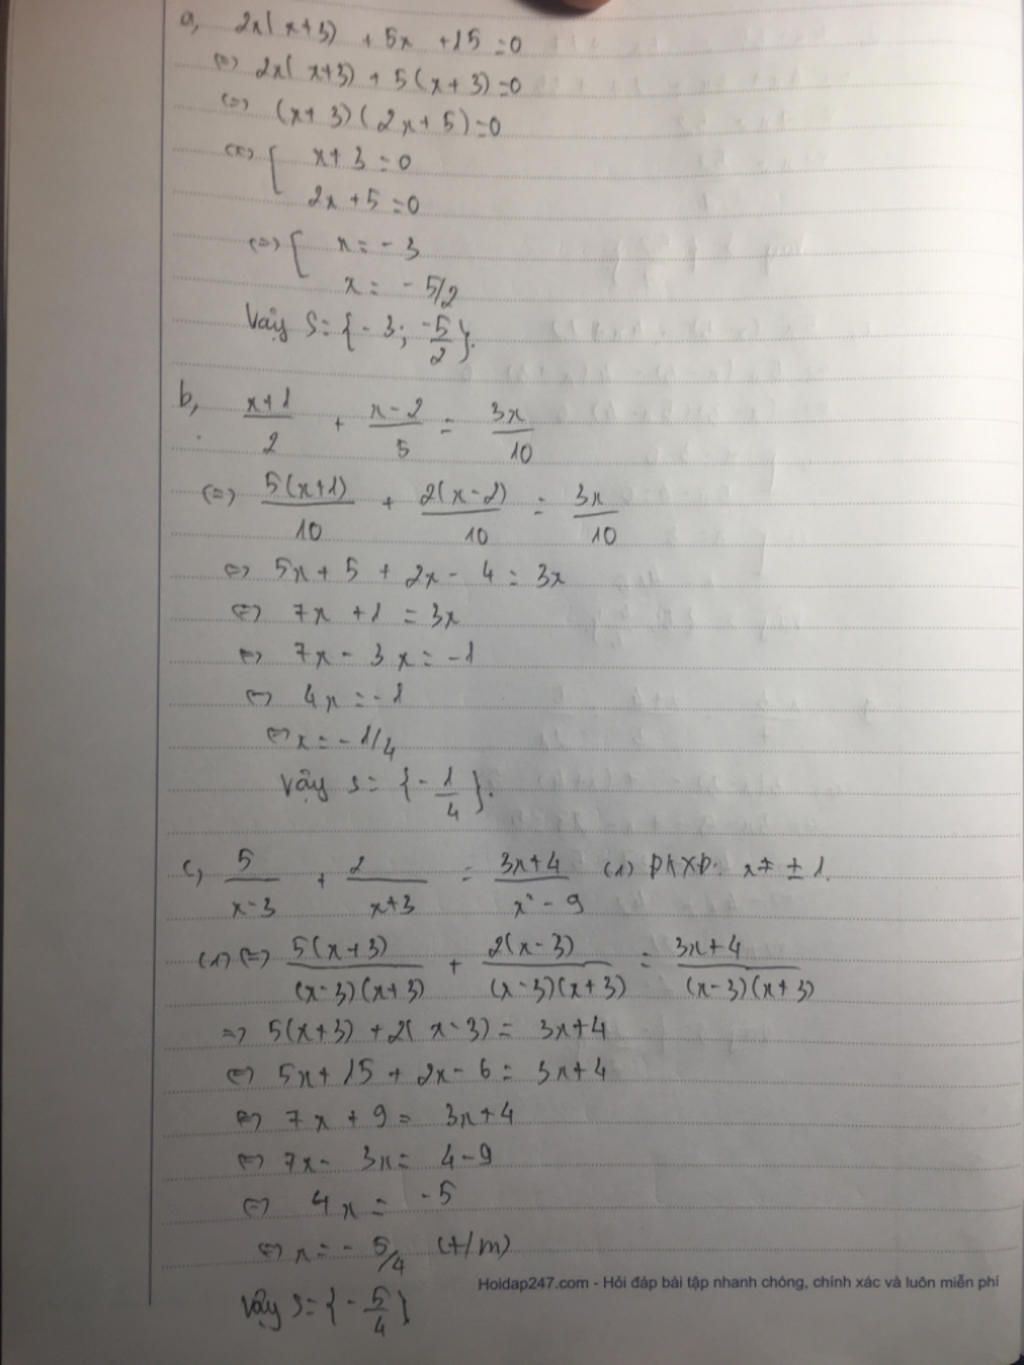 a, 2x(x+3) + 5x + 15 = 0
(=) 2x(x+3) + 5(x+3) = 0
(=) (x+3)(2x+5) = 0
(=) [ x+3 = 0
2x+5 = 0
(=) [ x = -3
x = -5/2
Vậy S = {-3; -5/2}.
b, (x+1)/2 + (x-2)/5 = 3x/10
(=) 5(x+1)/10 + 2(x-2)/10 = 3x/10
(=) 5x + 5 + 2x - 4 = 3x
(=) 7x + 1 = 3x
(=) 7x - 3x = -1
(=) 4x = -1
(=) x = -1/4
Vậy S = {-1/4}.
c, 5/(x-3) + 2/(x+3) = (3x+4)/(x²-9) (1) ĐKXĐ: x ≠ ± 1.
(1) (=) 5(x+3)/(x-3)(x+3) + 2(x-3)/(x-3)(x+3) = 3x+4/(x-3)(x+3)
=> 5(x+3) + 2(x-3) = 3x+4
(=) 5x + 15 + 2x - 6 = 3x+4
(=) 7x + 9 = 3x+4
(=) 7x - 3x = 4-9
(=) 4x = -5
(=) x = -5/4 (t/m)
Hoidap247.com - Hỏi đáp bài tập nhanh chóng, chính xác và luôn miễn phí
Vậy S = {-5/4}